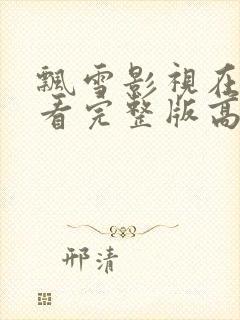 飄雪影視在
看完整版高
邢清